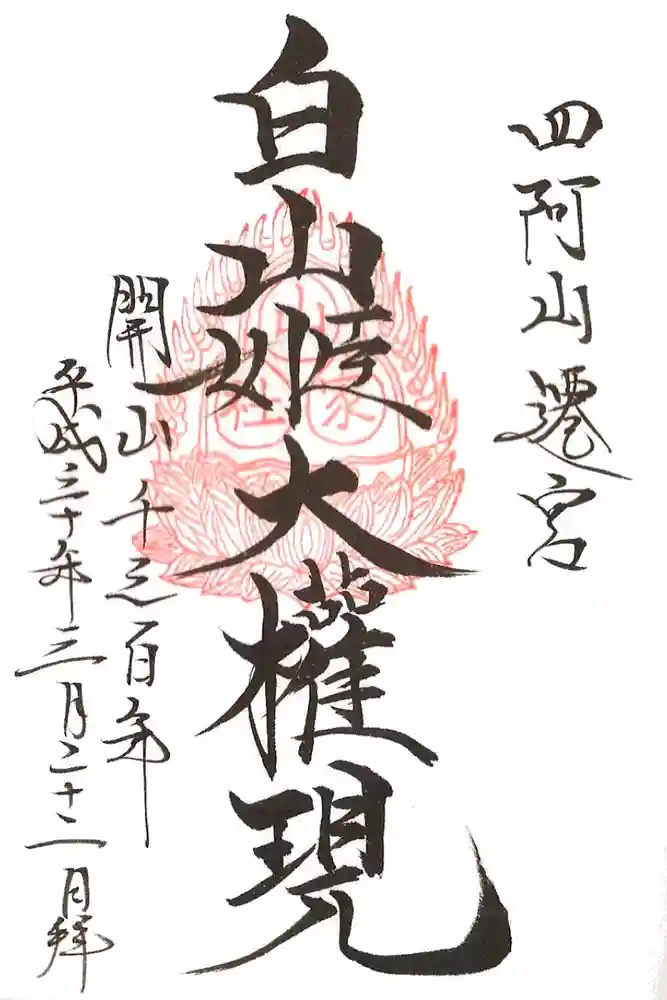 四阿山遷宮
白山姫大権現
開山千三百年
平成三十年三月二十二日拝